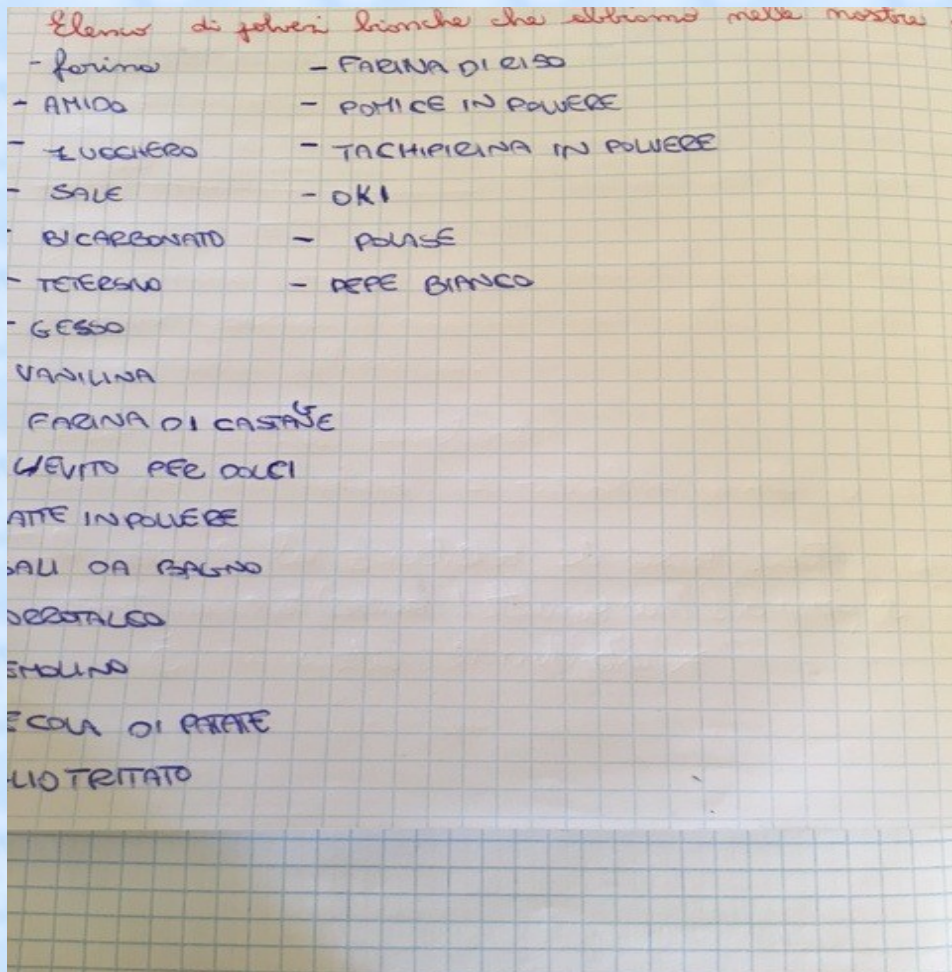 Elenco di polveri bianche che abbiamo nelle nostre
- farina
- AMIDO
- ZUCCHERO
- SALE
BICARBONATO
- TETERSIVO
- GESSO
VANILINA
FARINA DI CASTAGNE
LIEVITO PER DOLCI
ATTE IN POLVERE
SALI DA BAGNO
OROTALCO
EMOLINO
ECOLA DI PATATE
LIO TRITATO
- FARINA DI RISO
- POMICE IN POLVERE
- TACHIPIRINA IN POLVERE
- OKI
- POLASE
- PEPE BIANCO